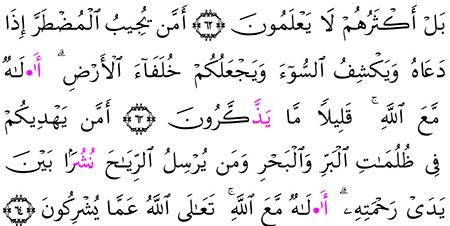 بَلْ أَكْثَرُهُمْ لَا يَعْلَمُونَ ٦٢ أَمَّن يُجِيبُ ٱلْمُضْطَرَّ إِذَا
دَعَاهُ وَيَكْشِفُ ٱلسُّوٓءَ وَيَجْعَلُكُمْ خُلَفَآءَ ٱلْأَرْضِ ۗ أَا۬لَـٰهٌ
مَّعَ ٱللَّهِ ۚ قَلِيلًا مَّا يَذَّكَّرُونَ ٦٣ أَمَّن يَهْدِيكُمْ
فِى ظُلُمَـٰتِ ٱلْبَرِّ وَٱلْبَحْرِ وَمَن يُرْسِلُ ٱلرِّيَـٰحَ نُشُرًۢا بَيْنَ
يَدَىْ رَحْمَتِهِۦٓ ۗ أَا۬لَـٰهٌ مَّعَ ٱللَّهِ ۚ تَعَـٰلَى ٱللَّهُ عَمَّا يُشْرِكُونَ ٦٤